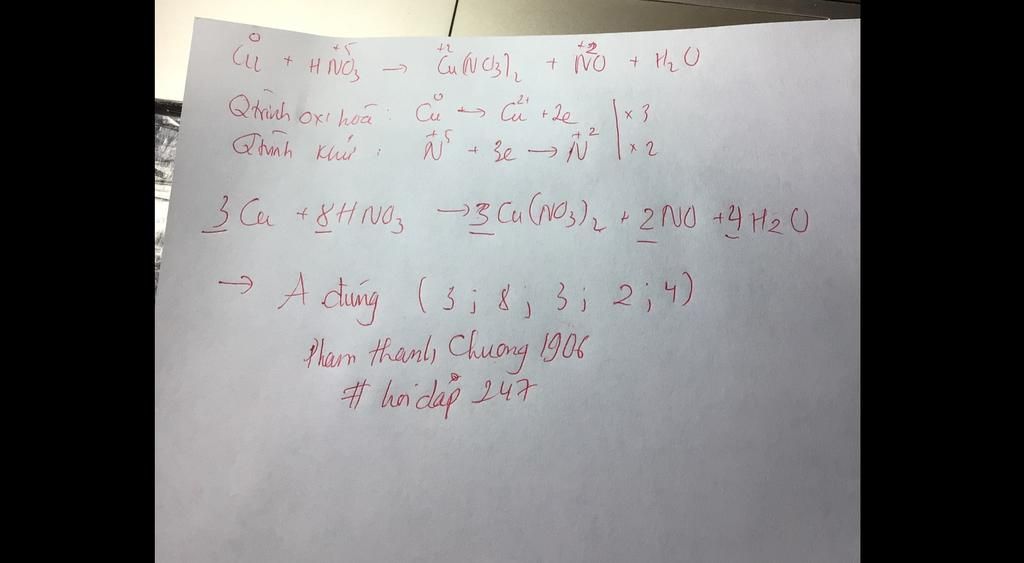 Cu⁰ + HN⁺⁵O₃ → Cu⁺²(NO₃)₂ + N⁺²O + H₂O
Qtrình oxi hoá : Cu⁰ → Cu²⁺ + 2e | x 3
Qtrình khử : N⁺⁵ + 3e → N⁺² | x 2
3Cu + 8HNO₃ → 3Cu(NO₃)₂ + 2NO + 4H₂O
→ A đúng (3 ; 8 ; 3 ; 2 ; 4)
Pham thanh Chuong 1906
# hoidap 247